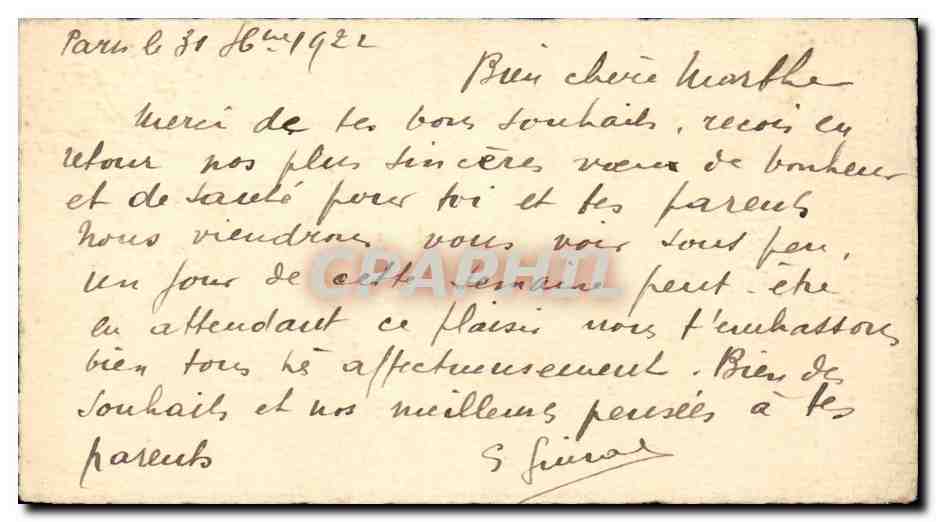 Paris le 31 Xbre 1922
Bien chère Marthe
Merci de tes bons souhaits, reçois en
retour nos plus sincères vœux de bonheur
et de santé pour toi et tes parents
Nous viendrons vous voir sous peu,
un jour de cette semaine peut-être
CPAPHIL
en attendant ce plaisir nous t'embrassons
bien tous très affectueusement. Bien des
souhaits et nos meilleures pensées à tes
parents